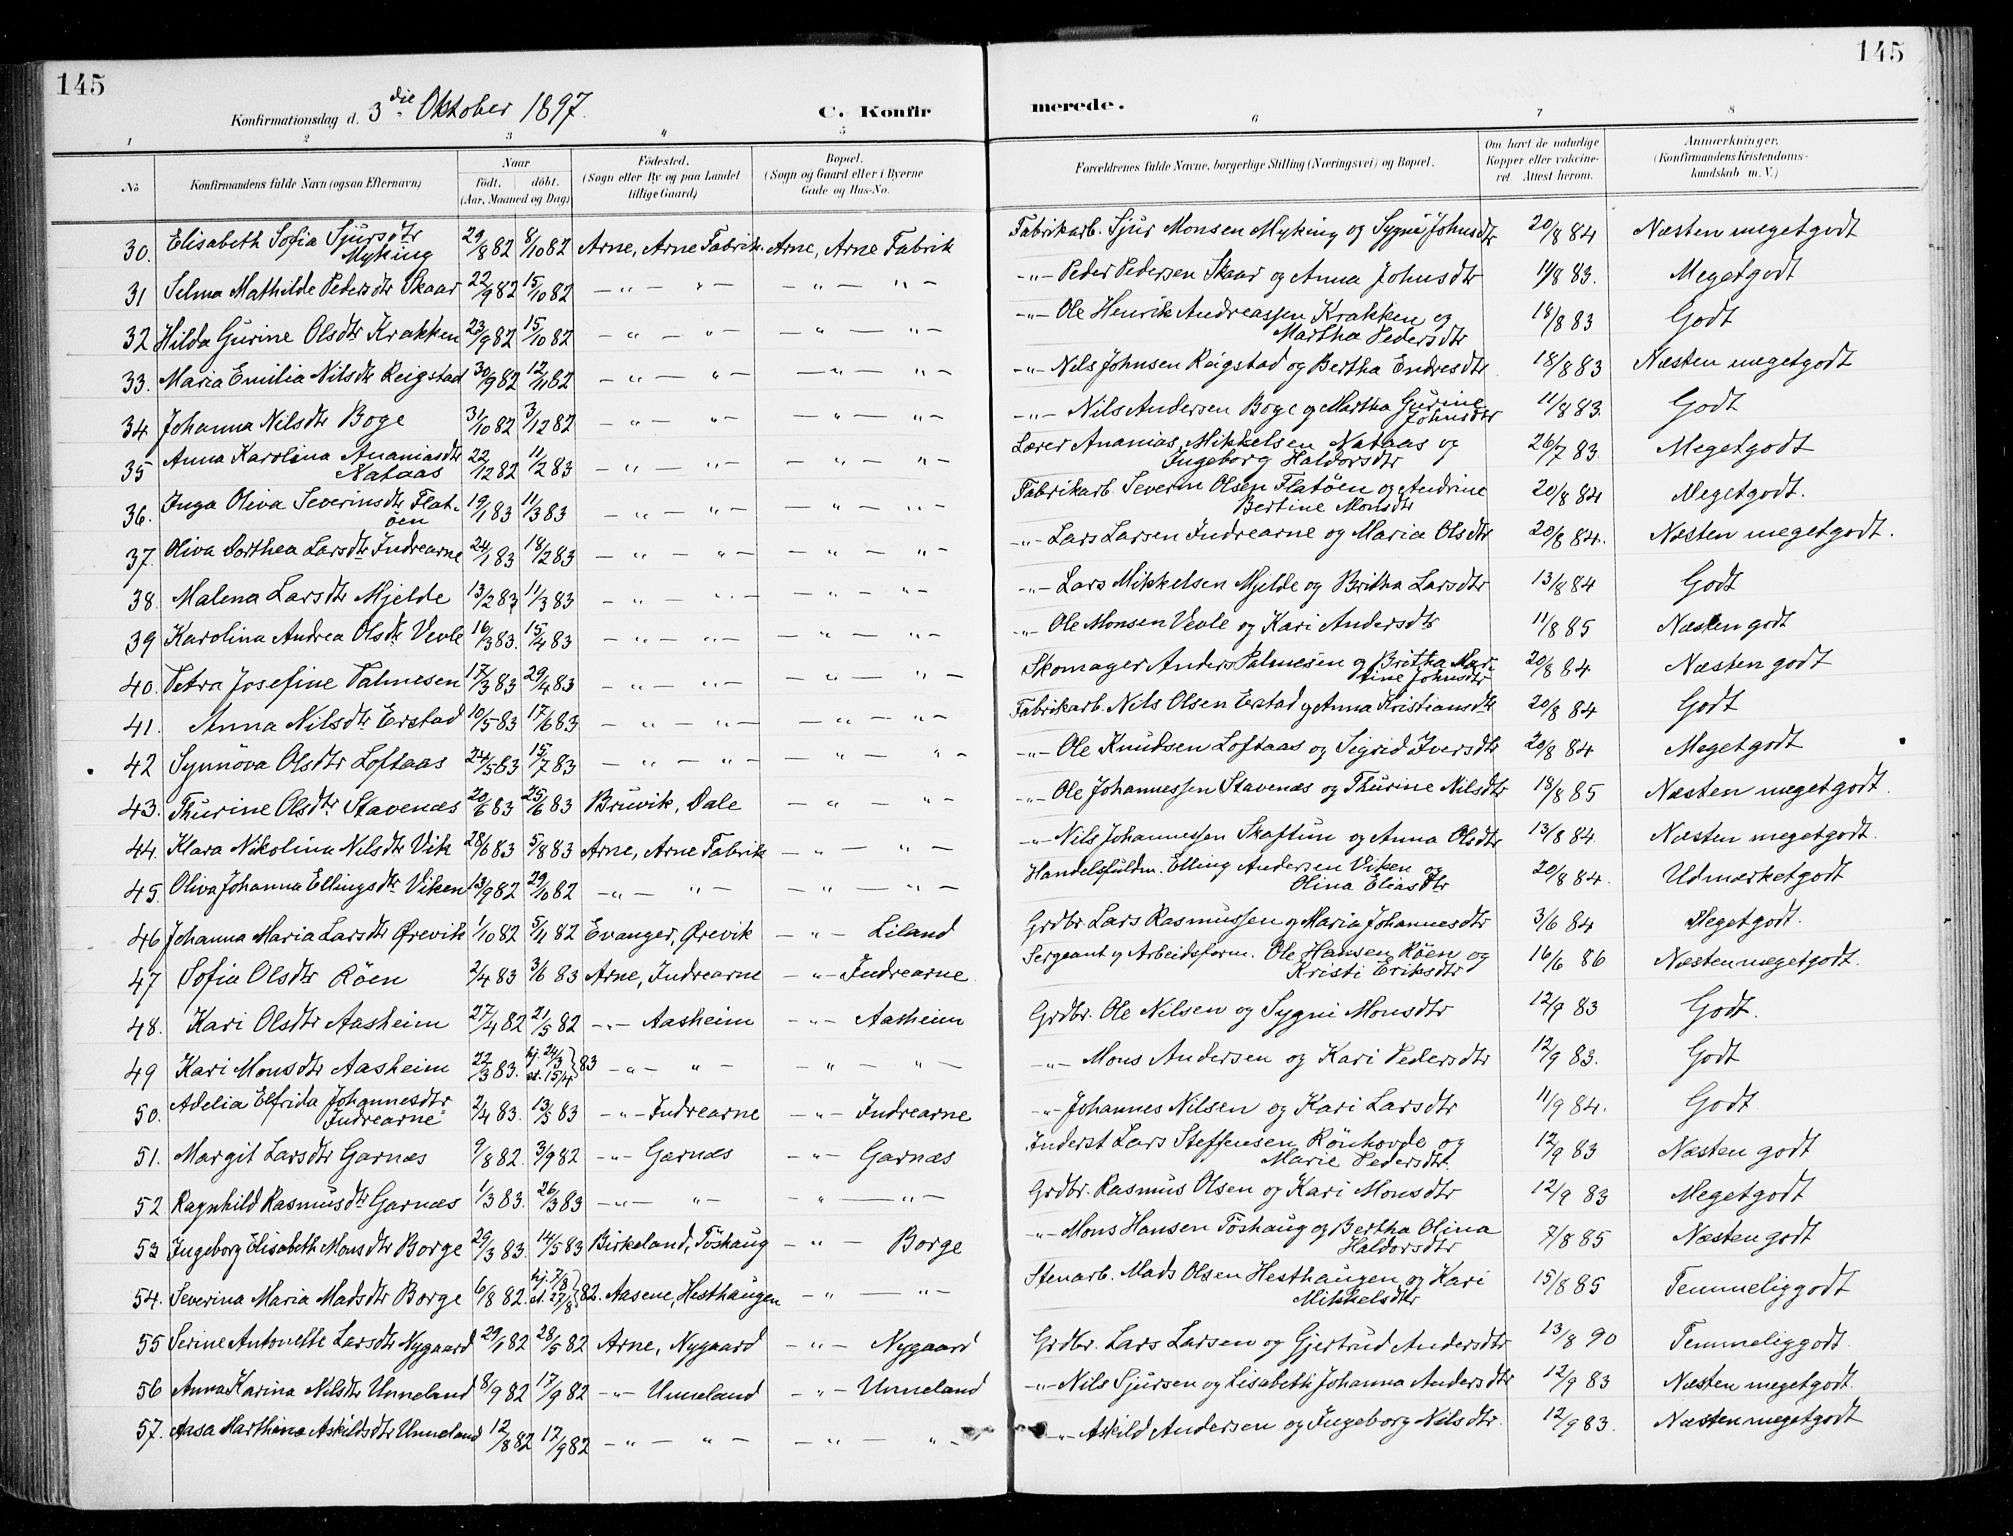 145
145
Konfirmationsdag d. 3die Oktober 1897.
C. Konfir merede.
1 2 3 4 5 6 7 8
No
Konfirmandens fulde Navn (ogsaa Efternavn)
Naar
födt. döbt.
(Aar, Maaned og Dag)
Födested.
(Sogn eller By og paa Landet tillige Gaard)
Bopæl.
(Sogn og Gaard eller i Byerne Gade og Hus-No.
Forældrenes fulde Navne, borgerlige Stilling (Næringsvei) og Bopæl.
Om havt de naturlige Kopper eller vaccineret Attest herom.
Anmærkninger,
(Konfirmandens Kristendomskundskab m. V.)
30. Elisabeth Sofia Sjursdtr Myking 29/8 82 8/10 82 Arne, Arne Fabrik Arne, Arne Fabrik Fabrikarb. Sjur Monsen Myking og Sygni Johnsdtr 20/8 84 Næsten megetgodt
31 Selma Mathilde Pedersdtr Skaar 22/9 82 15/10 82 — " — " — — " — " — - " - Peder Pedersen Skaar og Anna Johnsdtr 11/8 83. Megetgodt
32 Hilda Gurine Olsdtr Krakken 23/9 82 15/10 82 — " — " — — " — " — - " - Ole Henrik Andreassen Krakken og Martha Pedersdtr 18/8 83 Godt
33. Maria Emilia Nilsdtr Reigstad 30/9 82 12/11 82 — " — " — — " — " — - " - Nils Johnsen Reigstad og Bertha Endresdtr 18/8 83 Næsten megetgodt
34. Johanna Nilsdtr Boge 31/10 82 3/12 82 — " — " — — " — " — - " - Nils Andersen Boge og Martha Gurine Johnsdtr 11/8 83. Godt
35 Anna Karolina Ananiasdtr Nataas 22/12 82 11/2 83 — " — " — — " — " — Lærer Ananias Mikkelsen Nataas og Ingeborg Haldorsdtr 26/7 83. Megetgodt
36. Inga Oliva Severinsdtr Flatöen 19/1 83 11/3 83 — " — " — — " — " — Fabrikarb. Severin Olsen Flatöen og Andrine Bertine Monsdtr 20/8 84 Megetgodt.
37. Oliva Dorthea Larsdtr Indrearne 24/1 83 18/2 83 — " — " — — " — " — - " - Lars Larsen Indrearne og Maria Olsdtr 20/8 84. Næsten megetgodt.
38. Malena Larsdtr Mjelde 13/2 83 11/3 83 — " — " — — " — " — - " - Lars Mikkelsen Mjelde og Britha Larsdtr 13/8 84 Godt
39 Karolina Andrea Olsdtr Vevle 16/3 83. 15/4 83 — " — " — — " — " — - " - Ole Monsen Vevle og Kari Andersdtr 11/8 85 Næsten godt
40. Petra Josefine Palmesen 17/3 83 29/4 83 — " — " — — " — " — Skomager Anders Palmesen og Britha Martine Johnsdtr 20/8 84 Næsten godt
41. Anna Nilsdtr Erstad 10/5 83 17/6 83 — " — " — — " — " — Fabrikarb. Nils Olsen Erstad og Anna Kristiansdtr 20/8 84 Godt
42 Synnöva Olsdtr Loftaas 24/5 83 15/7 83 — " — " — — " — " — - " - Ole Knudsen Loftaas og Sigrid Iversdtr 20/8 84 Megetgodt
43. Thurine Olsdtr Stavenæs 20/6 83 25/6 83 Bruvik, Dale — " — " — - " - Ole Johannessen Stavenæs og Thurine Nilsdtr 18/8 85 Næsten megetgodt.
44. Klara Nikolina Nilsdtr Vik 28/6 83 5/8 83 Arne, Arne Fabrik — " — " — - " - Nils Johannessen Skaftun og Anna Olsdtr 13/8 84. Næsten megetgodt.
45. Oliva Johanna Ellingsdtr Viken 13/9 82 29/10 82 — " — " — — " — " — Handelsfuldm. Elling Andersen Viken og Olina Eliasdtr 20/8 84. Udmærketgodt
46 Johanna Maria Larsdtr Ørevik 1/10 82 5/11 82 Evanger, Ørevik — " — Liland Grdbr. Lars Rasmussen og Maria Johannesdtr 3/6 84 Megetgodt.
47 Sofia Olsdtr Röen 2/4 83 3/6 83 Arne, Indrearne — " — Indrearne Sergeant og Arbeidsform. Ole Hansen Röen og Kristi Eriksdtr 16/6 86 Næsten megetgodt.
48. Kari Olsdtr Aasheim 27/4 82 21/5 82 — " — Aasheim — " — Aasheim Grdbr. Ole Nilsen og Sygni Monsdtr 12/9 83 Godt.
49 Kari Monsdtr Aasheim 22/3 83. hj. 24/3 st. 15/4 } 83 — " — " — " — " — - " - Mons Andersen og Kari Pedersdtr 12/9 83. Godt
50. Adelia Elfrida Johannesdtr Indrearne 2/4 83. 13/5 83 — " — Indrearne — " — Indrearne - " - Johannes Nilsen og Kari Larsdtr 11/9 84. Godt
51. Margit Larsdtr Garnæs 9/8 82. 3/9 82 — " — Garnæs — " — Garnæs Inderst Lars Steffensen Rönhovde og Marie Pedersdtr. 12/9 83 Næsten godt
52 Ragnhild Rasmusdtr Garnæs 1/3 83. 26/3 83 — " — " — " — " — Grdbr. Rasmus Olsen og Kari Monsdtr 12/9 83 Megetgodt
53 Ingeborg Elisabeth Monsdtr Borge 29/3 83. 14/5 83 Birkeland, Töshaug — " — Borge - " - Mons Hansen Töshaug og Bertha Olina Haldorsdtr 7/8 85 Næsten godt
54. Severina Maria Madsdtr Borge 6/8 82. hj. 7/8 st. 27/8 } 82. Aasene, Hesthaugen — " — " — Stenarb. Mads Olsen Hesthaugen og Kari Mikkelsdtr 15/8 85 Temmeliggodt
55 Serine Antonette Larsdtr Nygaard 29/1 82 28/5 82 Arne, Nygaard — " — Nygaard Grdbr. Lars Larsen og Gjertrud Andersdtr 13/8 90 Temmeliggodt.
56 Anna Karina Nilsdtr Unneland 8/9 82 17/9 82 — " — Unneland — " — Unneland - " - Nils Sjursen og Lisabeth Johanna Andersdtr 12/9 83 Næsten megetgodt.
57. Aasa Marthina Askildsdtr Unneland 12/8 82 17/9 82 — " — " — — " — " — - " - Askild Andersen og Ingeborg Nilsdtr. 12/9 83. Næsten megetgodt